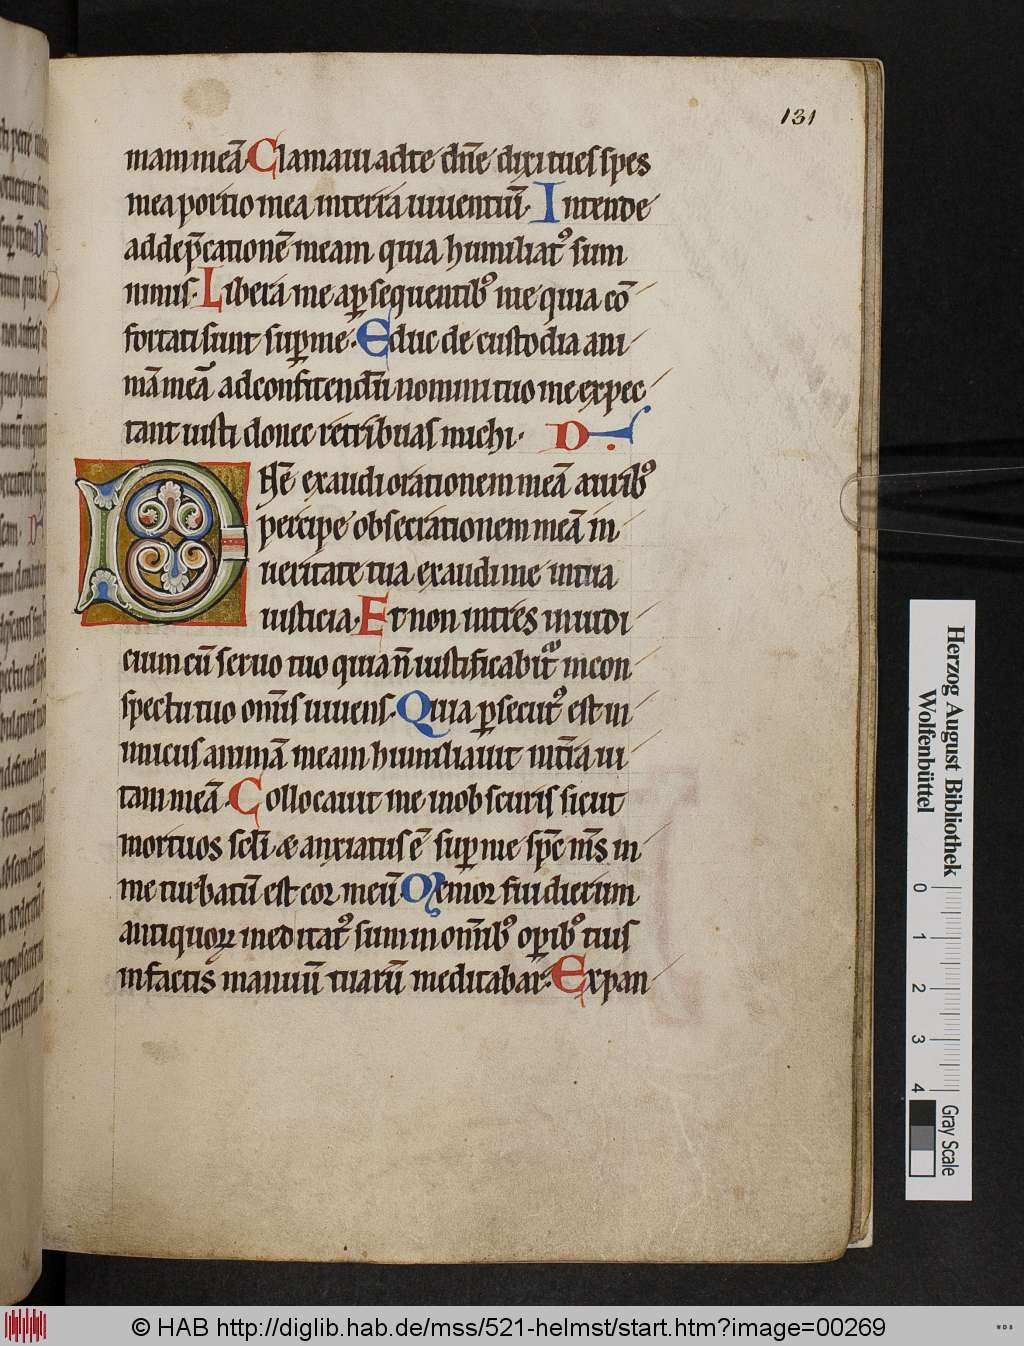 131
mam meā Clamaui ad te dn̄e dixi tu es spes
mea portio mea in terra uiuentiū. Intende
ad dep̄cationē meam quia humiliatꝰ sum
nimis. Libera me a ꝑsequentibꝰ me quia cō
fortati sunt suꝑ me. Educ de custodia ani
mā meā ad confitendū nomini tuo me expec
tant iusti donec retribuas michi. D
Dn̄e exaudi orationem meā auribꝰ
percipe obsecrationem meā in
ueritate tua exaudi me in tua
iusticia. Et non intres in iudi
cium cū seruo tuo quia n̄ iustificabit᷑ in con
spectu tuo om̄is uiuens. Quia ꝑsecutꝰ est in
imicus animā meam humiliauit in t̄ra ui
tam meā. Collocauit me in obscuris sicut
mortuos scl̄i & anxiatus ē suꝑ me sp̄c m̄s in
me turbatū est cor meū. Memor fui dierum
antiquoꝝ meditatꝰ sum in om̄ibꝰ oꝑibꝰ tuis
in factis manuū tuarū meditabar. Expan
Herzog August Bibliothek
Wolfenbüttel
0 1 2 3 4
Gray Scale
© HAB http://diglib.hab.de/mss/521-helmst/start.htm?image=00269